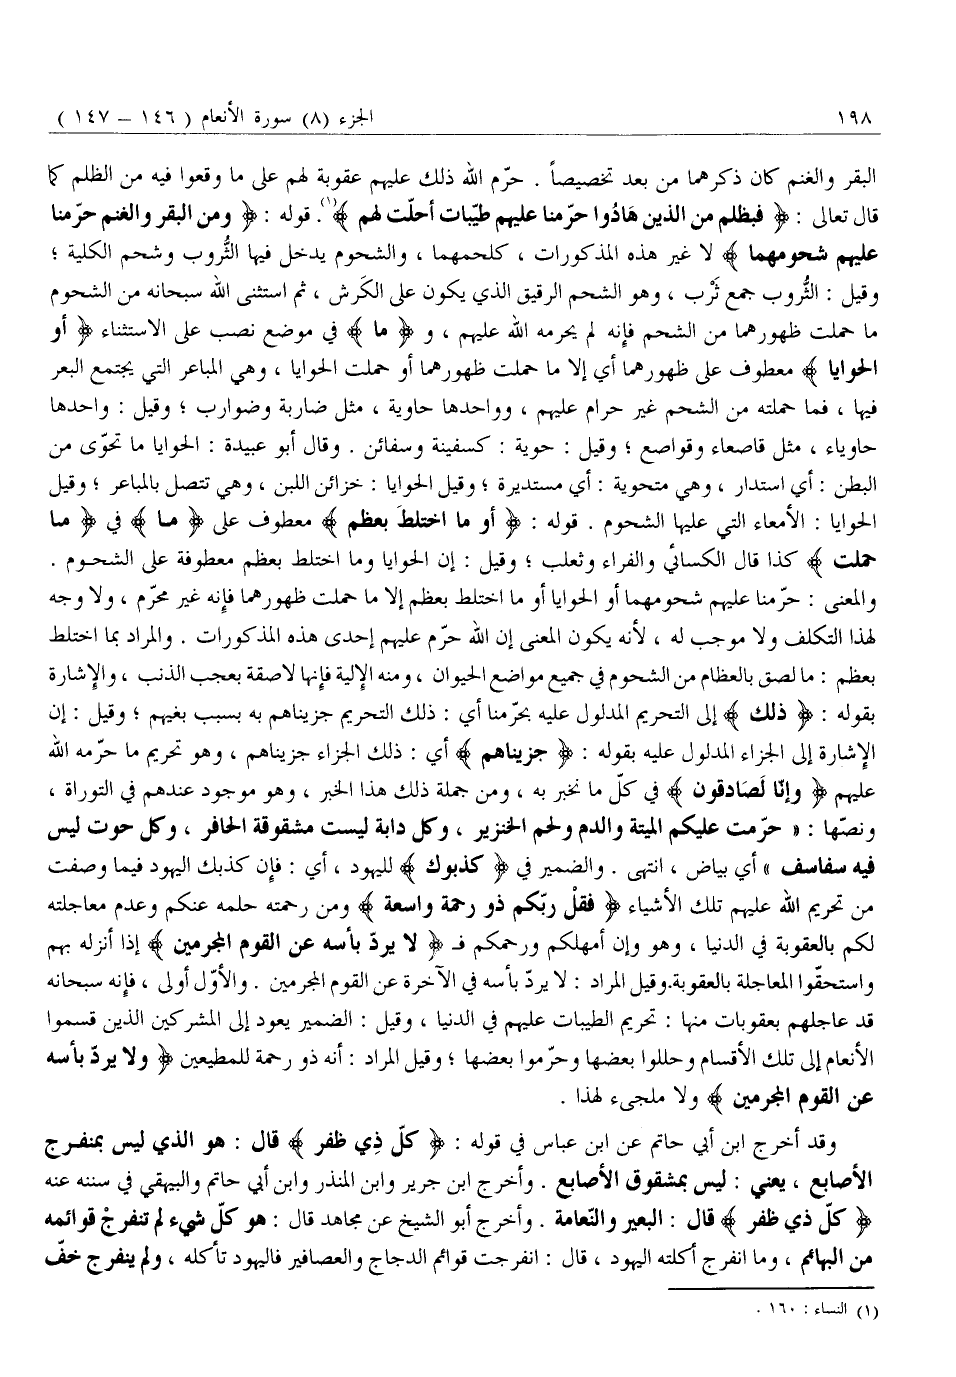 ١٩٨
الجزء (٨) سورة الأنعام ( ١٤٦ – ١٤٧ )
البقر والغنم كان ذكرهما من بعد تخصيصاً . حرّم الله ذلك عليهم عقوبة لهم على ما وقعوا فيه من الظلم كما
قال تعالى : ﴿ فبظلم من الذين هَادُوا حرّمنا عليهم طيّبات أحلّت لهم ﴾(١). قوله : ﴿ ومن البقر والغنم حرّمنا
عليهم شحومهما ﴾ لا غير هذه المذكورات ، كلحمهما ، والشحوم يدخل فيها الثُّروب وشحم الكلية ؛
وقيل : الثُّروب جمع ثَرْب ، وهو الشحم الرقيق الذي يكون على الكَرش ، ثم استثنى الله سبحانه من الشحوم
ما حملت ظهورهما من الشحم فإنه لم يحرمه الله عليهم ، و ﴿ ما ﴾ في موضع نصب على الاستثناء ﴿ أو
الحوايا ﴾ معطوف على ظهورهما أي إلا ما حملت ظهورهما أو حملت الحوايا ، وهي المباعر التي يجتمع البعر
فيها ، فما حملته من الشحم غير حرام عليهم ، وواحدها حاوية ، مثل ضاربة وضوارب ؛ وقيل : واحدها
حاوياء ، مثل قاصعاء وقواصع ؛ وقيل : حوية : كسفينة وسفائن . وقال أبو عبيدة : الحوايا ما تحوّى من
البطن : أي استدار ، وهي متحوية : أي مستديرة ؛ وقيل الحوايا : خزائن اللبن ، وهي تتصل بالمباعر ؛ وقيل
الحوايا : الأمعاء التي عليها الشحوم . قوله : ﴿ أو ما اختلطَ بعظم ﴾ معطوف على ﴿ مـا ﴾ في ﴿ مـا
حملت ﴾ كذا قال الكسائي والفراء وثعلب ؛ وقيل : إن الحوايا وما اختلط بعظم معطوفة على الشحـوم .
والمعنى : حرّمنا عليهم شحومهما أو الحوايا أو ما اختلط بعظم إلا ما حملت ظهورهما فإنه غير محرّم ، ولا وجه
لهذا التكلف ولا موجب له ، لأنه يكون المعنى إن الله حرّم عليهم إحدى هذه المذكورات . والمراد بما اختلط
بعظم : ما لصق بالعظام من الشحوم في جميع مواضع الحيوان ، ومنه الإلية فإنها لاصقة بعجب الذنب ، والإشارة
بقوله : ﴿ ذلك ﴾ إلى التحريم المدلول عليه بحرّمنا أي : ذلك التحريم جزيناهم به بسبب بغيهم ؛ وقيل : إن
الإشارة إلى الجزاء المدلول عليه بقوله : ﴿ جزيناهم ﴾ أي : ذلك الجزاء جزيناهم ، وهو تحريم ما حرّمه الله
عليهم ﴿ وإنّا لَصَادقون ﴾ في كلّ ما نخبر به ، ومن جملة ذلك هذا الخبر ، وهو موجود عندهم في التوراة ،
ونصّها : « حرّمت عليكم الميتة والدم ولحم الخنزير ، وكل دابة ليست مشقوقة الحافر ، وكل حوت ليس
فيه سفاسف » أي بياض ، انتهى . والضمير في ﴿ كذبوك ﴾ لليهود ، أي : فإن كذبك اليهود فيما وصفت
من تحريم الله عليهم تلك الأشياء ﴿ فقلْ ربّكم ذو رحمة واسعة ﴾ ومن رحمته حلمه عنكم وعدم معاجلته
لكم بالعقوبة في الدنيا ، وهو وإن أمهلكم ورحمكم فـ ﴿ لا يردّ بأسه عن القوم المجرمين ﴾ إذا أنزله بهم
واستحقّوا المعاجلة بالعقوبة.وقيل المراد : لا يردّ بأسه في الآخرة عن القوم المجرمين . والأوّل أولى ، فإنه سبحانه
قد عاجلهم بعقوبات منها : تحريم الطيبات عليهم في الدنيا ، وقيل : الضمير يعود إلى المشركين الذين قسموا
الأنعام إلى تلك الأقسام وحللوا بعضها وحرّموا بعضها ؛ وقيل المراد : أنه ذو رحمة للمطيعين ﴿ ولا يردّ بأسه
عن القوم المجرمين ﴾ ولا ملجىء لهذا .
وقد أخرج ابن أبي حاتم عن ابن عباس في قوله : ﴿ كلّ ذِي ظفر ﴾ قال : هو الذي ليس بمنفـرج
الأصابع ، يعني : ليس بمشقوق الأصابع . وأخرج ابن جرير وابن المنذر وابن أبي حاتم والبيهقي في سننه عنه
﴿ كلّ ذي ظفر ﴾ قال : البعير والنّعامة . وأخرج أبو الشيخ عن مجاهد قال : هو كلّ شيء لم تنفرجْ قوائمه
من البهائم ، وما انفرج أكلته اليهود ، قال : انفرجت قوائم الدجاج والعصافير فاليهود تأكله ، ولم ينفرج خفّ
(١) النساء : ١٦٠ .